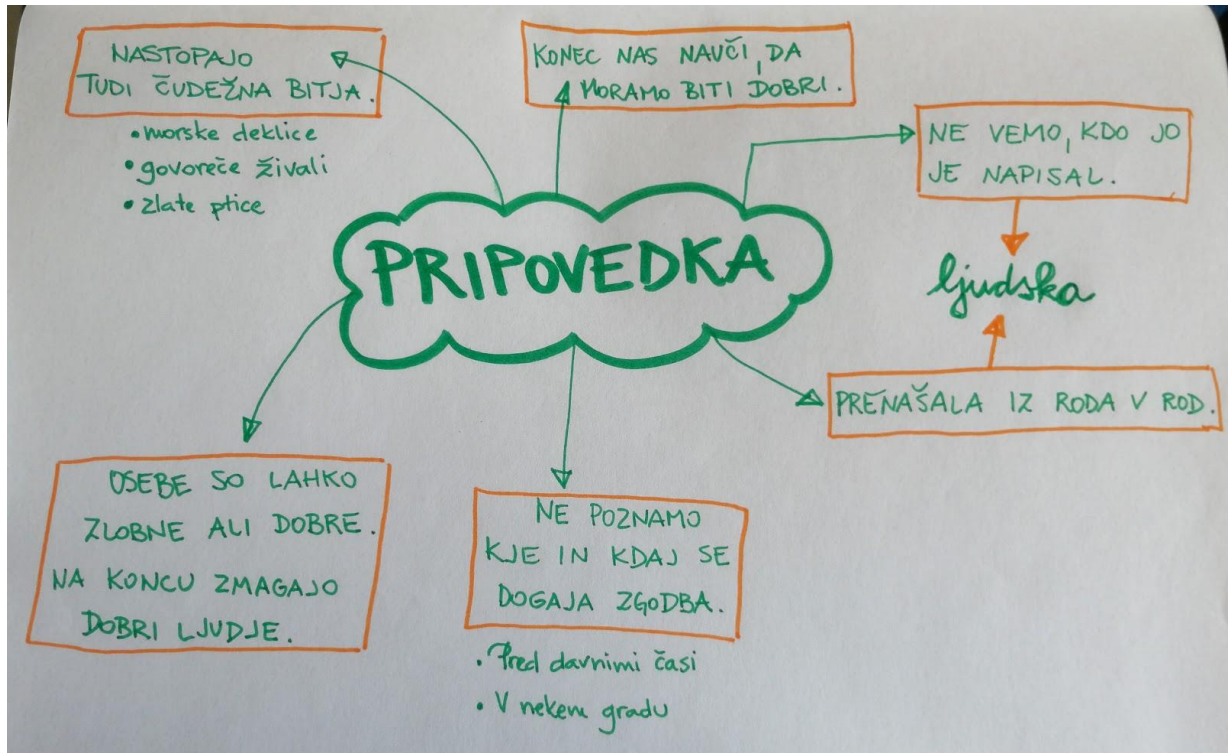 NASTOPAJO
TUDI ČUDEŽNA BITJA.
• morske deklice
• govoreče živali
• zlate ptice
KONEC NAS NAUČI, DA
MORAMO BITI DOBRI.
NE VEMO, KDO JO
JE NAPISAL.
PRIPOVEDKA
ljudska
PRENAŠALA IZ RODA V ROD.
OSEBE SO LAHKO
ZLOBNE ALI DOBRE.
NA KONCU ZMAGAJO
DOBRI LJUDJE.
NE POZNAMO
KJE IN KDAJ SE
DOGAJA ZGODBA.
• Pred davnimi časi
• V nekem gradu